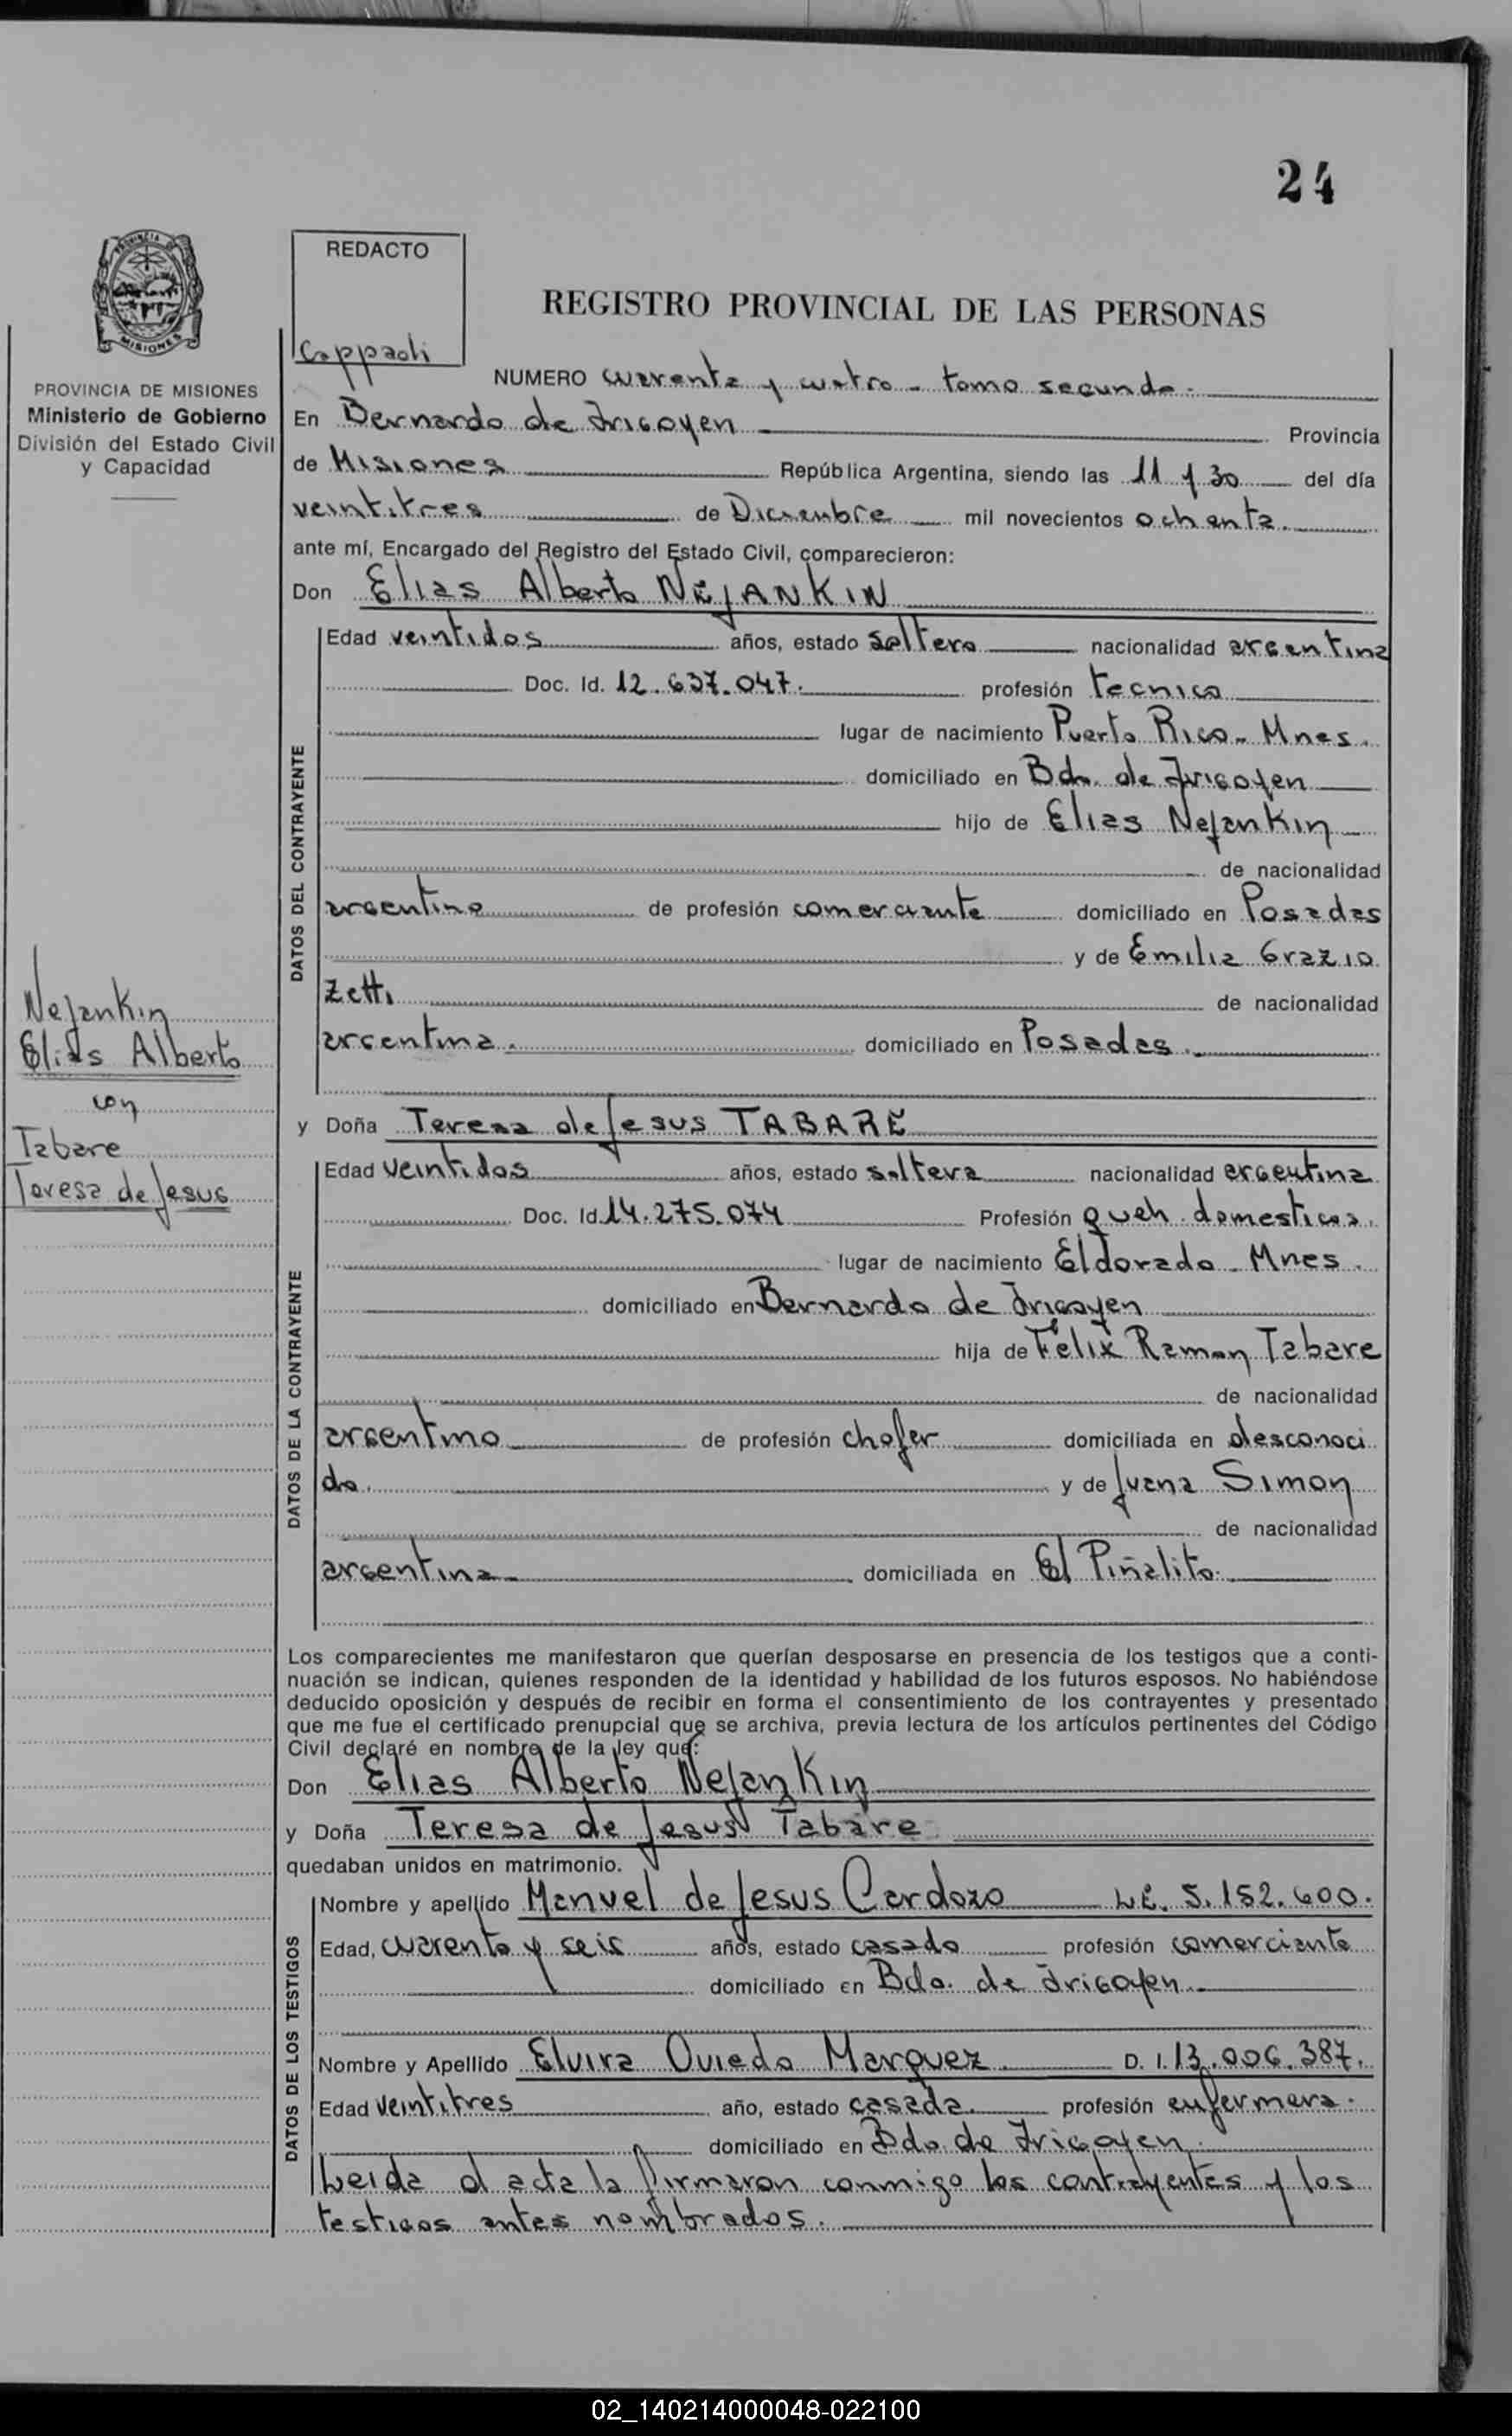 24
PROVINCIA DE
MISIONES
PROVINCIA DE MISIONES
Ministerio de Gobierno
División del Estado Civil
y Capacidad
REDACTO
REGISTRO PROVINCIAL DE LAS PERSONAS
NUMERO cuarenta y cuatro - tomo segundo.
En Bernardo de Irigoyen Provincia
de Misiones República Argentina, siendo las 11 y 30 del día
veintitres de Diciembre mil novecientos ochenta.
ante mí, Encargado del Registro del Estado Civil, comparecieron:
Don Elias Alberto NEJANKIN
DATOS DEL CONTRAYENTE
Edad veintidos años, estado soltero nacionalidad argentina
Doc. Id. 12.637.047. profesión tecnico
lugar de nacimiento Puerto Rico - Mnes.
domiciliado en Bdo. de Irigoyen
hijo de Elias Nejankin
de nacionalidad
argentino de profesión comerciante domiciliado en Posadas
y de Emilia Grazio
zetti de nacionalidad
argentina. domiciliado en Posadas.
Nejankin
Elias Alberto
con
Tabare
Teresa de Jesus
y Doña Teresa de Jesus TABARE
DATOS DE LA CONTRAYENTE
Edad veintidos años, estado soltera nacionalidad argentina
Doc. Id. 14.275.074 Profesión queh. domesticos.
lugar de nacimiento Eldorado - Mnes.
domiciliado en Bernardo de Irigoyen
hija de Félix Ramon Tabare
de nacionalidad
argentino de profesión chofer domiciliada en desconoci
do. y de Juana Simon
de nacionalidad
argentina domiciliada en El Piñalito.
Los comparecientes me manifestaron que querían desposarse en presencia de los testigos que a conti-
nuación se indican, quienes responden de la identidad y habilidad de los futuros esposos. No habiéndose
deducido oposición y después de recibir en forma el consentimiento de los contrayentes y presentado
que me fue el certificado prenupcial que se archiva, previa lectura de los artículos pertinentes del Código
Civil declaré en nombre de la ley que:
Don Elias Alberto Nejankin
y Doña Teresa de Jesus Tabare
quedaban unidos en matrimonio.
DATOS DE LOS TESTIGOS
Nombre y apellido Manuel de Jesus Cardozo L.E. 5.152.600.
Edad, cuarenta y seis años, estado casado profesión comerciante
domiciliado en Bdo. de Irigoyen.
Nombre y Apellido Elvira Oviedo Marquez. D. I. 13.006.387.
Edad veintitres año, estado casada. profesión enfermera.
domiciliado en Bdo. de Irigoyen.
Leida el acta la firmaron conmigo los contrayentes y los
testigos antes nombrados.
02_140214000048-022100